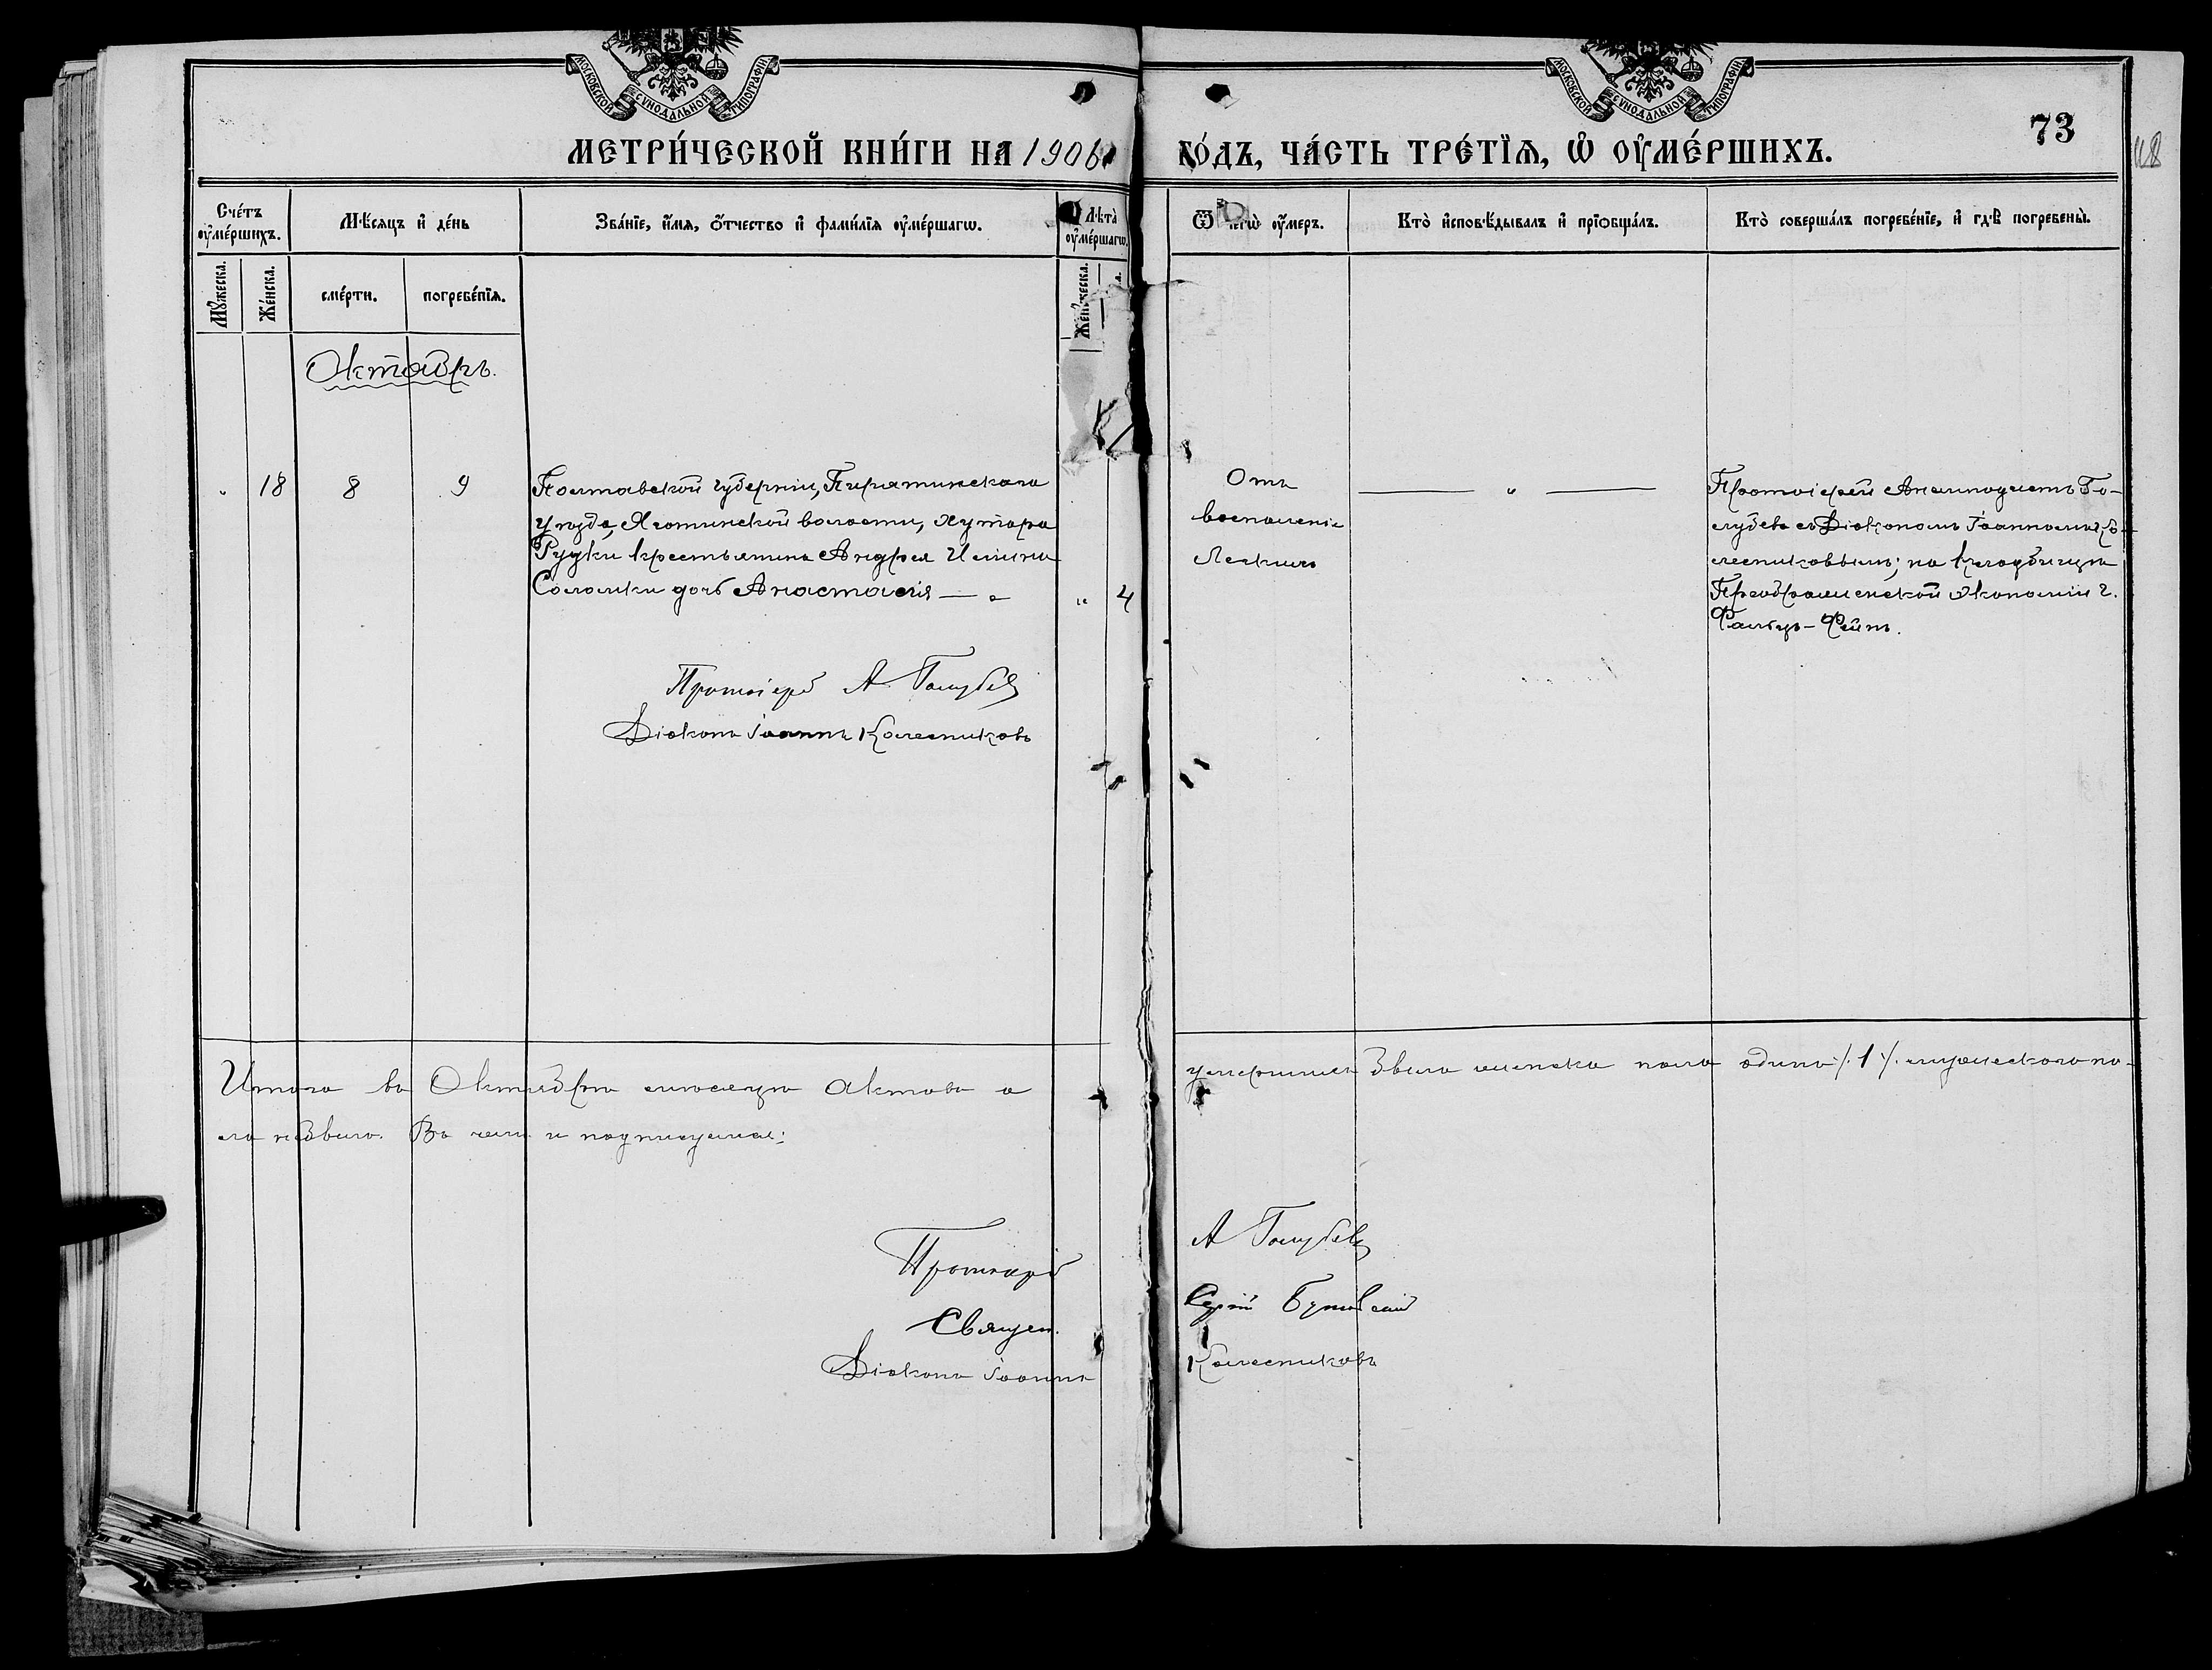 МОСКОВСКОЙ СѴНОДАЛЬНОЙ ТИПОГРАФІИ
МОСКОВСКОЙ СѴНОДАЛЬНОЙ ТИПОГРАФІИ
МЕТРИ́ЧЕСКОЙ КНИ́ГИ НА 1906 ГО́ДЪ, ЧА́СТЬ ТРЕ́ТЇѦ, Ѡ ОУМЕ́РШИХЪ.
73
Сче́тъ оуме́ршихъ.
Мѣ́сяцъ и де́нь
Зва́нїе, и́мя, о́тчество и фами́лїя оуме́ршагѡ.
Лѣта̀ оуме́ршагѡ.
Ѿ чегѡ̀ оу́меръ.
Кто̀ исповѣ́дывалъ и прїѡбща́лъ.
Кто̀ соверша́лъ погребе́нїе, и гдѣ̀ погребены̀.
Мꙋжеска.
Же́нска.
сме́рти.
погребе́нїя.
Октябрь.
18 8 9
Полтавской губерніи, Пирятинскаго
уѣзда, Яготинской волости, хутора
Рудки крестьянина Андрея
Соломки дочь Анастасія — „
„ 4
Отъ
воспаленіе
Легкихъ
— „ —
Протоіерей Анемподистъ Го-
лубевъ съ Діакономъ Іоанномъ Ко-
лесниковымъ; на кладбищѣ
Преображенской экономіи г.
Фальцъ-Фейнъ.
Протоіерей А. Голубевъ
Діаконъ Іоаннъ Колесниковъ
Итого въ Октябрѣ мѣсяцѣ актовъ о умершихъ было женска пола одинъ /.1/. мужескаго по-
ла небыло. Въ чемъ и подписуемся:
Протоіерей А Голубевъ
Священ. Сергій
Діаконъ Іоаннъ Колесниковъ